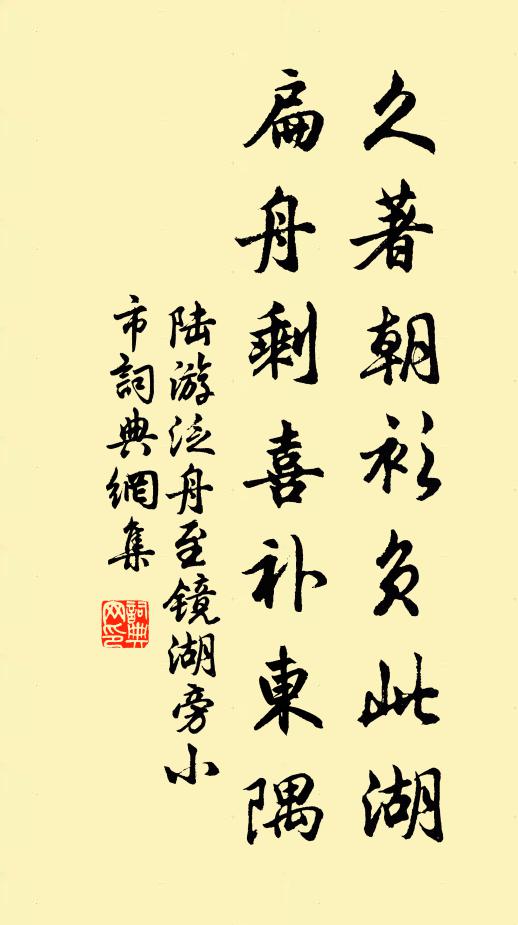 久著朝衫负此湖
扁舟剩喜补東隅
陆游泛舟至镜湖旁小
市詞典網集
詞典
网印